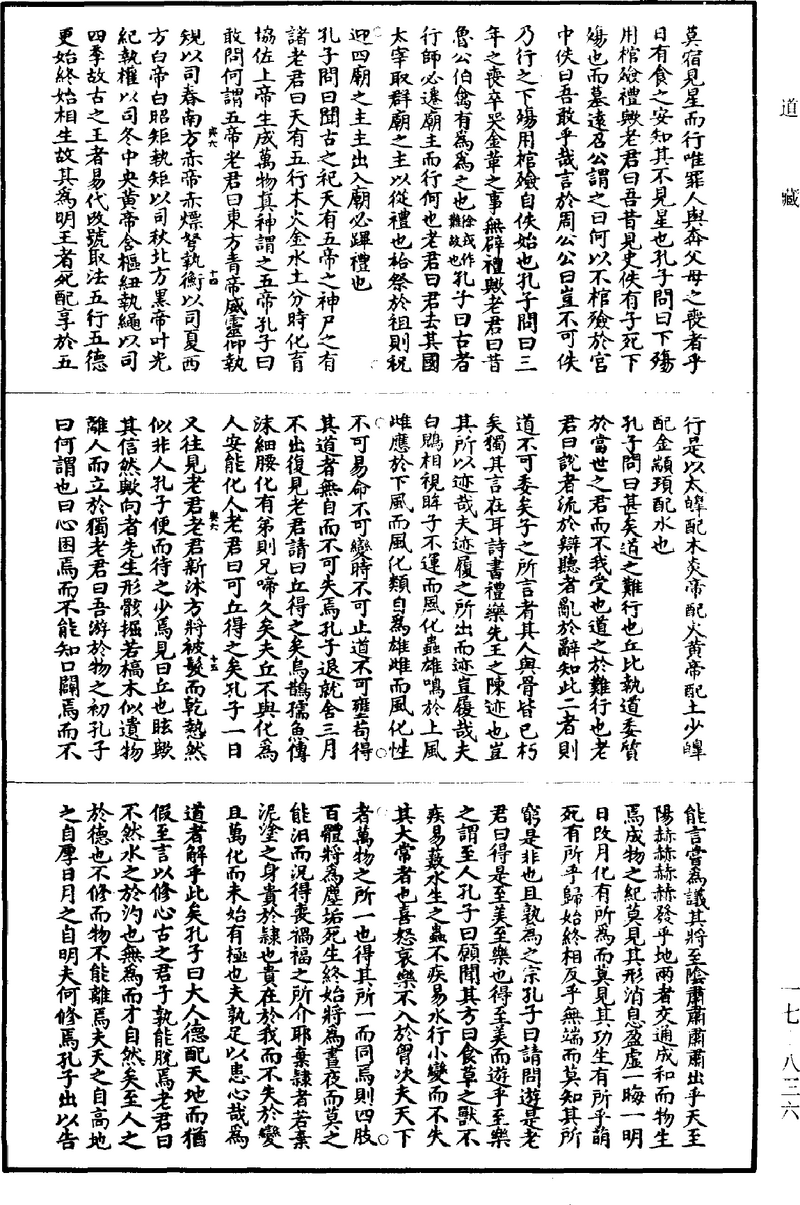 道藏
一七·八三六
莫宿見星而行唯罪人與奔父母之喪者乎
日有食之安知其不見星也孔子問曰下殤
用棺殮禮歟老君曰吾昔見史佚有子死下
殤也而墓遠召公謂之曰何以不棺殮於宮
中佚曰吾敢乎哉言於周公公曰豈不可佚
乃行之下殤用棺殮自佚始也孔子問曰三
年之喪卒哭金革之事無辟禮歟老君曰昔
魯公伯禽有為為之也徐戎作難故也孔子曰古者
行師必遷廟主而行何也老君曰君去其國
太宰取群廟之主以從禮也祫祭於祖則祝
迎四廟之主主出入廟必蹕禮也
孔子問曰聞古之祀天有五帝之神尸之有
諸老君曰天有五行木火金水土分時化育
協佐上帝生成萬物其神謂之五帝孔子曰
敢問何謂五帝老君曰東方青帝威靈仰執
規以司春南方赤帝赤熛弩執衡以司夏西
方白帝白昭矩執矩以司秋北方黑帝叶光
紀執權以司冬中央黃帝含樞紐執繩以司
四季故古之王者易代改號取法五行五德
更始終始相生故其為明王者死配享於五
行是以太皞配木炎帝配火黃帝配土少皞
配金顓頊配水也
孔子問曰甚矣道之難行也丘比執道委質
於當世之君而不我受也道之於難行也老
君曰說者流於辯聽者亂於辭知此二者則
道不可委矣子之所言者其人與骨皆已朽
矣獨其言在耳詩書禮樂先王之陳迹也豈
其所以迹哉夫迹履之所出而迹豈履哉夫
白鶂相視眸子不運而風化蟲雄鳴於上風
雌應於下風而風化類自為雄雌而風化性
不可易命不可變時不可止道不可壅苟得
其道者無自而不可失焉孔子退就舍三月
不出復見老君請曰丘得之矣烏鵲孺魚傳
沫細腰化有弟則兄啼久矣夫丘不與化為
人安能化人老君曰可丘得之矣孔子一日
又往見老君老君新沐方將被髮而乾慹然
似非人孔子便而待之少焉見曰丘也眩歟
其信然歟向者先生形骸掘若槁木似遺物
離人而立於獨老君曰吾游於物之初孔子
曰何謂也曰心困焉而不能知口闢焉而不
能言嘗為議其將至陰肅肅肅肅出乎天至
陽赫赫赫赫發乎地兩者交通成和而物生
焉成物之紀莫見其形消息盈虛一晦一明
日改月化有所為而莫見其功生有所乎萌
死有所乎歸始終相反乎無端而莫知其所
窮是非也且孰為之宗孔子曰請問遊是老
君曰得是至美至樂也得至美而遊乎至樂
之謂至人孔子曰願聞其方曰食草之獸不
疾易藪水生之蟲不疾易水行小變而不失
其大常者也喜怒哀樂不入於胷次夫天下
者萬物之所一也得其所一而同焉則四肢
百體將為塵垢死生終始將為晝夜而莫之
能汨而況得喪禍福之所介耶棄隸者若棄
泥塗之身貴於隸也貴在於我而不失於變
且萬化而未始有極也夫孰足以患心哉為
道者解乎此矣孔子曰大人德配天地而猶
假至言以修心古之君子孰能脫焉老君曰
不然水之於汋也無為而才自然矣至人之
於德也不修而物不能離焉夫天之自高地
之自厚日月之自明夫何修焉孔子出以告